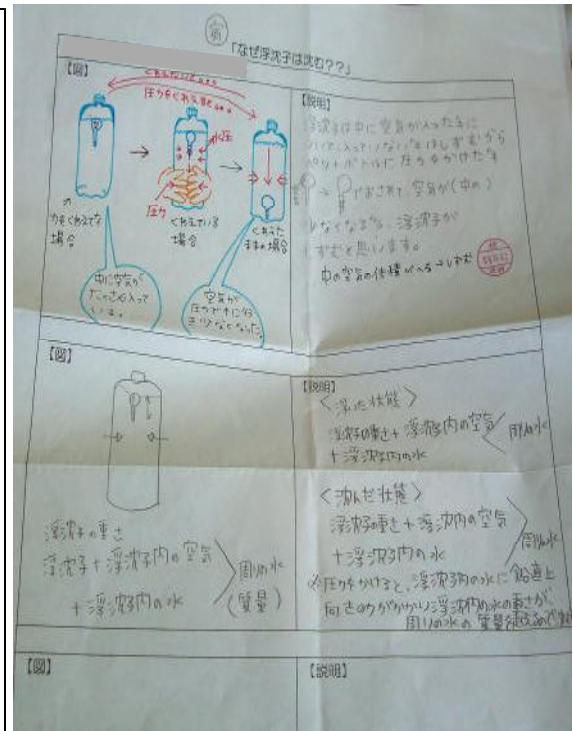 「なぜ浮沈子は沈む??」
【図】
圧力をくわえると
水圧
圧力
力をくわえてない
場合
くわえている
場合
くわえた
ままの場合
中に空気が
たくさん入って
いる。
空気が
【説明】
浮沈子は中に空気が入った

ペットボトルに圧力をかけた
おされて、空気が(中の)
少なくなるから、浮沈子が
しずむと思います。
中の空気の体積がへる→しずむ
【図】
浮沈子の重さ
浮沈子+浮沈子内の空気
+浮沈子内の水
周りの水
(質量)
【説明】
<浮いた状態>
浮沈子の重さ+浮沈子内の空気
+浮沈子内の水
周りの水
<沈んだ状態>
浮沈子の重さ+浮沈内の空気
+浮沈子内の水
周りの水
※圧力をかけると、浮沈子内の水に鉛直上
向きの力がかかり浮沈内の水の重さが
周りの水の質量
【図】
【説明】